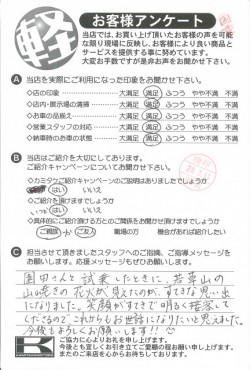 軽
お客様アンケート
当店では、お買い上げ頂いたお客様の声を可能
な限り現場に反映し、お客様により良い商品と
サービスを提供する事に努めています。
大変お手数ですが是非お声をお聞かせ下さい。
A 当店を実際にご利用になった印象をお聞かせ下さい。
◇店の印象 大満足 満足 ふつう やや不満 不満
◇店内・展示場の清掃 大満足 満足 ふつう やや不満 不満
◇お車の品揃え 大満足 満足 ふつう やや不満 不満
◇営業スタッフの対応 大満足 満足 ふつう やや不満 不満
◇納車時のお車の状態 大満足 満足 ふつう やや不満 不満
B 当店はご紹介を大切にしております。
ご紹介キャンペーンについてお聞かせ下さい。
◇カミタケご紹介キャンペーンのご説明はありましたでしょうか
はい いいえ
◇ご紹介を頂けますでしょうか
はい いいえ
◇具体的にご紹介頂ける方とのご関係をお聞かせ頂けますでしょうか
ご親族 ご友人 職場の方 機会があれば紹介したい
C 担当させて頂きましたスタッフへのご指摘、ご指導メッセージを
お願いします。応援メッセージもぜひお願いします。
園田さんと試乗したときに、若草山の
山焼きの花火が見えたのが、すてきな思い出
になりました。笑顔がすてきで明るく接客して
くださるので これからもお世話になりたいと思えました。
今後もよろしくお願いします!!
ご協力に心よりお礼を申し上げます。
今後とも宜しくお引き立てご愛顧の程お願い申し上げます。
またのご来店を心からお待ちしております。